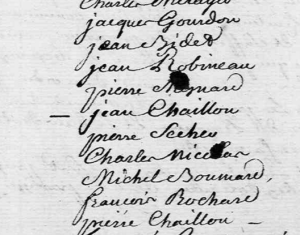 Charles
jacques Gourdon
jean Bidet
jean Robineau
pierre Menard
— jean Chaillou
pierre Secher
Charles Nicolas
Michel Boumard,
francois Rochard
pierre Chaillou —